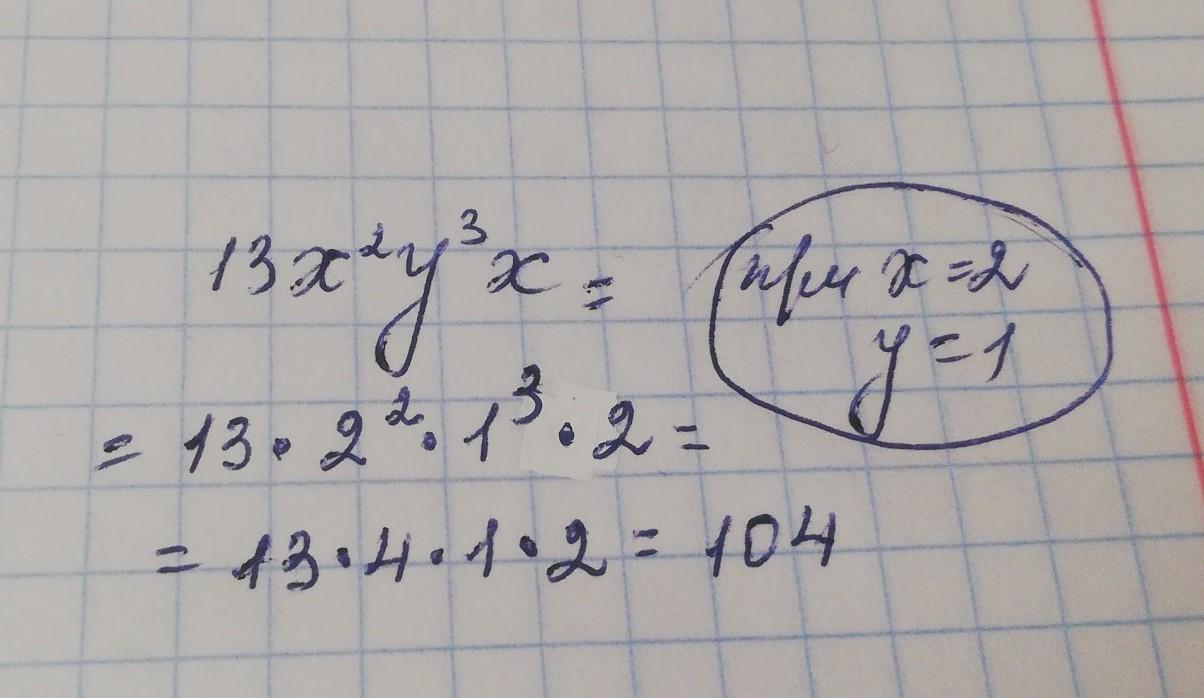 13x²y³x =
при x=2
y=1
= 13 · 2² · 1³ · 2 =
= 13 · 4 · 1 · 2 = 104